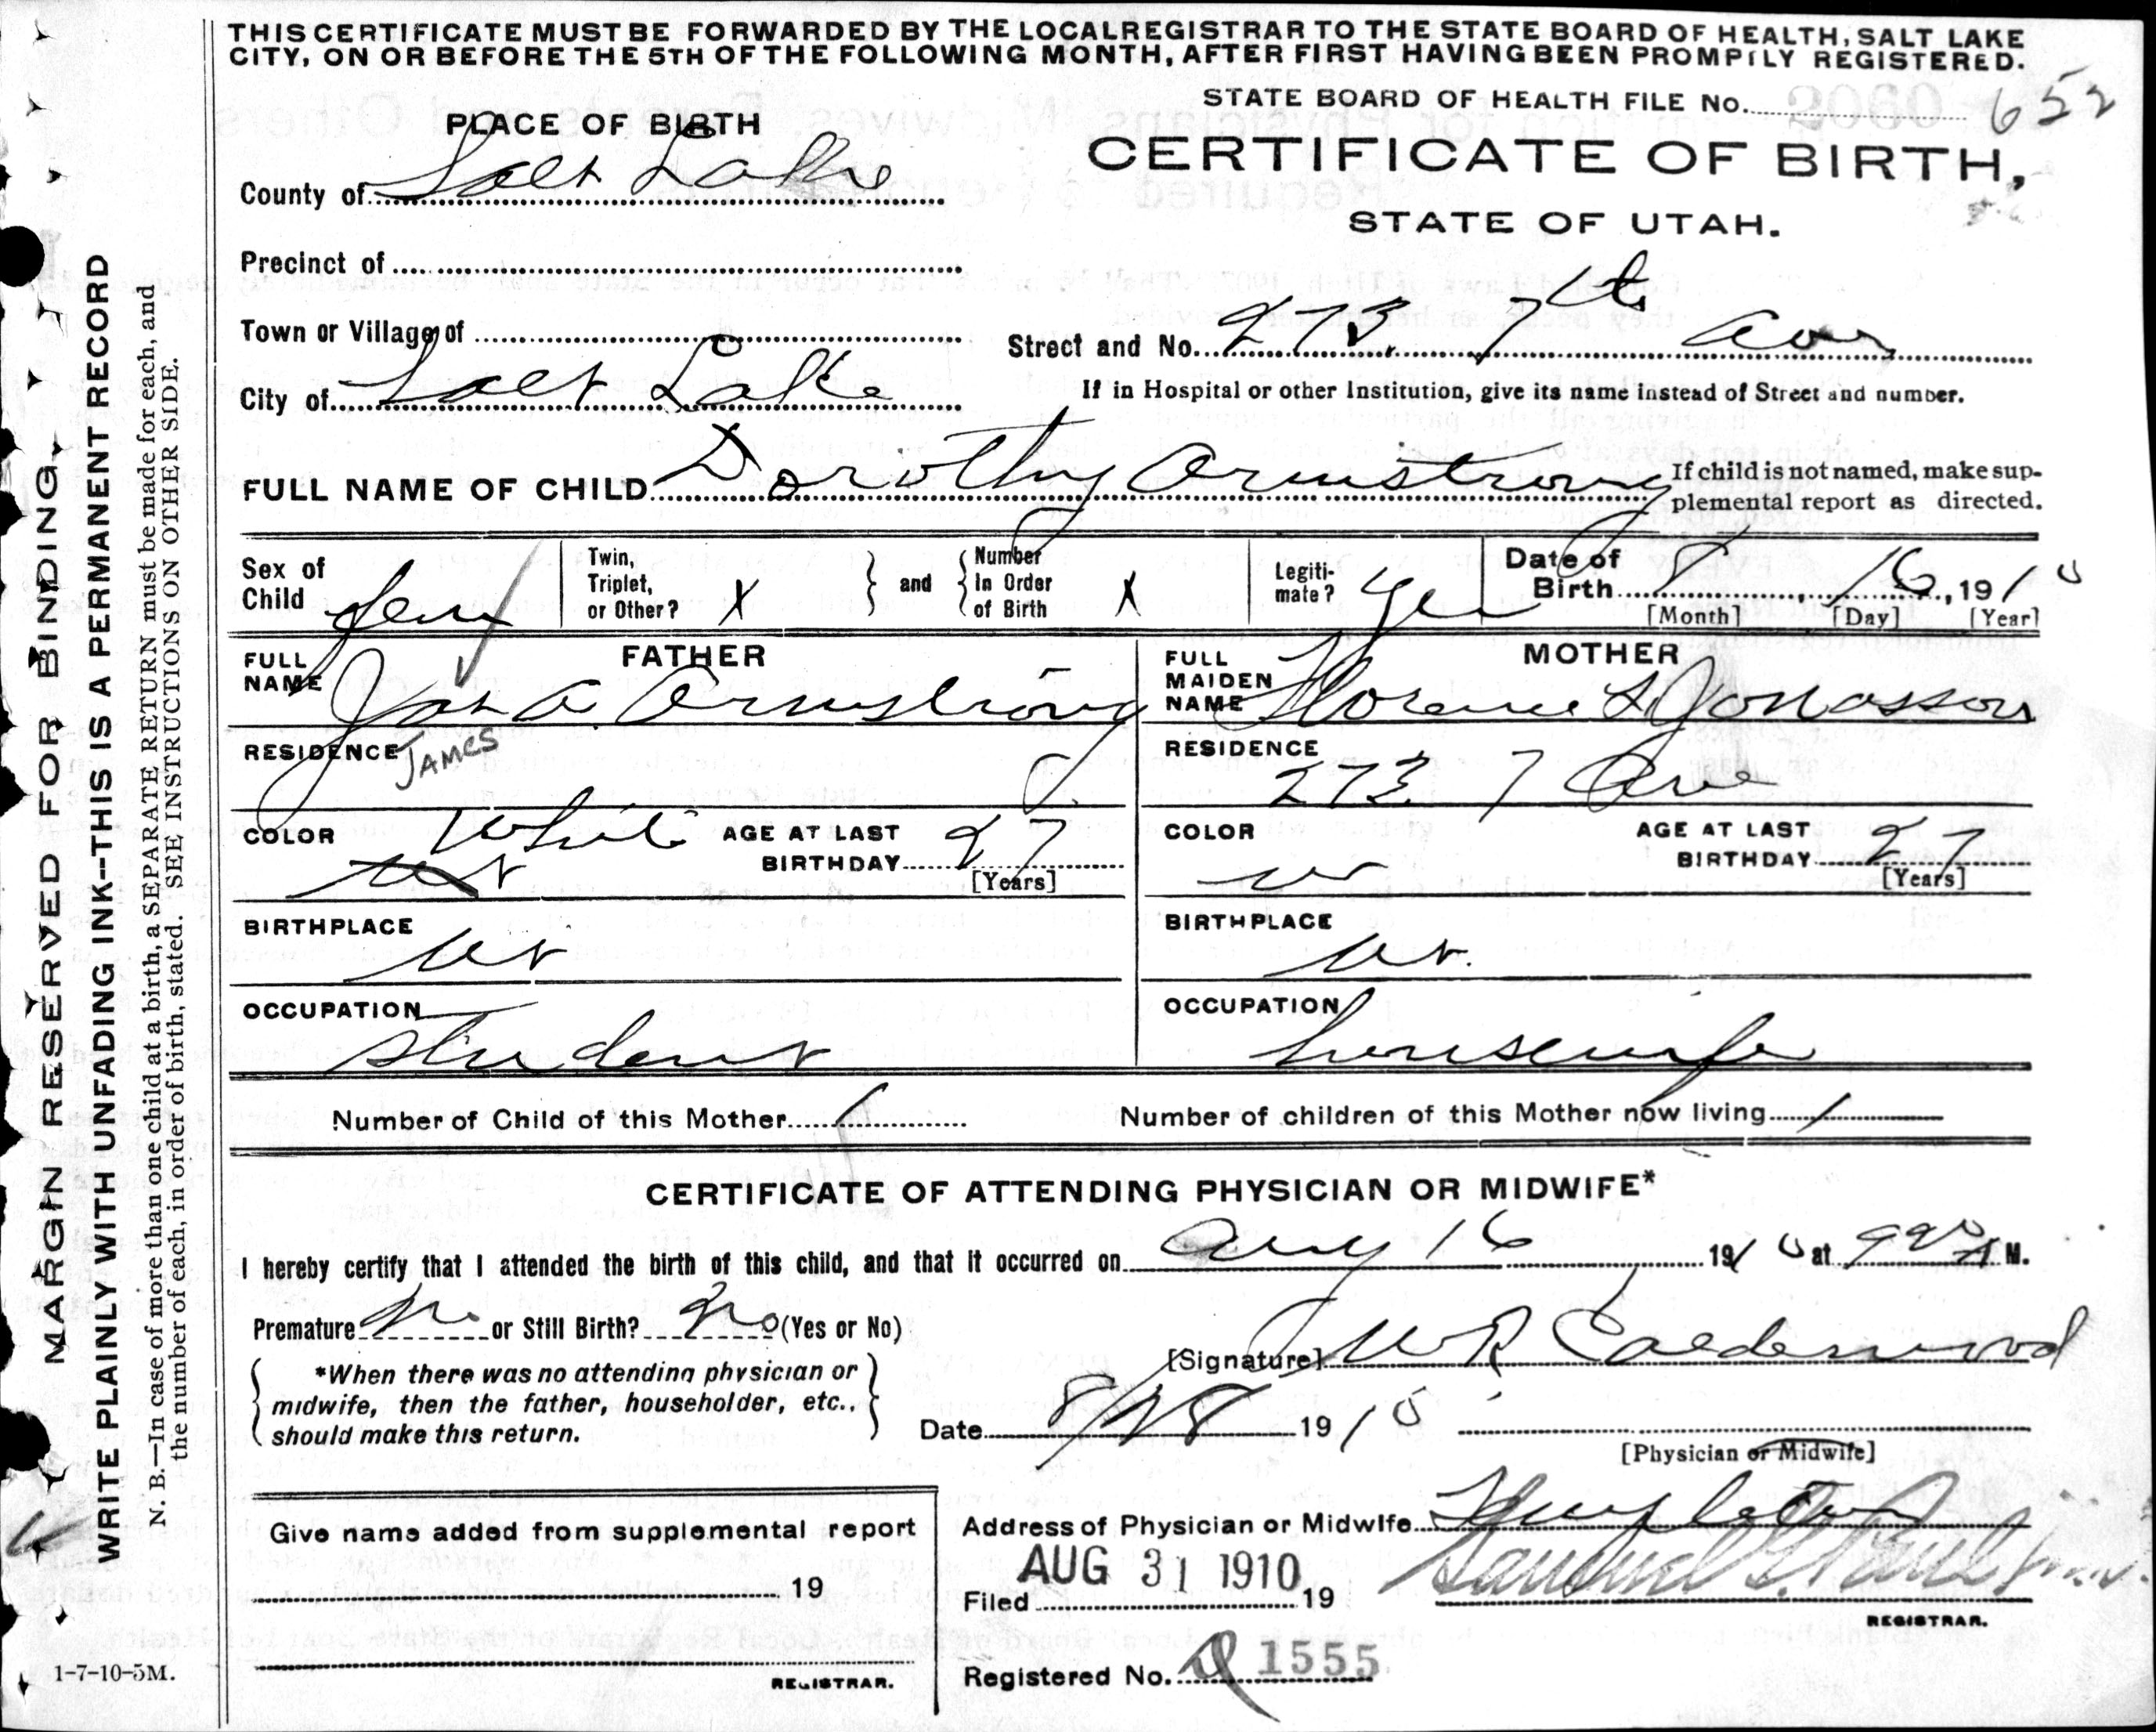 THIS CERTIFICATE MUST BE FORWARDED BY THE LOCAL REGISTRAR TO THE STATE BOARD OF HEALTH, SALT LAKE
CITY, ON OR BEFORE THE 5TH OF THE FOLLOWING MONTH, AFTER FIRST HAVING BEEN PROMPTLY REGISTERED.
STATE BOARD OF HEALTH FILE No. 652
PLACE OF BIRTH
CERTIFICATE OF BIRTH,
STATE OF UTAH.
County of Salt Lake
Precinct of
Town or Village of
Street and No. 273. 7th Ave
City of Salt Lake
If in Hospital or other Institution, give its name instead of Street and number.
FULL NAME OF CHILD Dorothy Armstrong
If child is not named, make sup-
plemental report as directed.
Sex of Child fem
Twin, Triplet, or Other? X
and
Number In Order of Birth X
Legiti-mate? Yes
Date of Birth 8, 16, 1910
[Month] [Day] [Year]
FATHER
FULL NAME Jas A Armstrong
JAMES
RESIDENCE
COLOR White
AGE AT LAST BIRTHDAY 27
[Years]
BIRTHPLACE Ut
OCCUPATION Student
MOTHER
FULL MAIDEN NAME Florence L Jonasson
RESIDENCE 273. 7 Ave
COLOR w
AGE AT LAST BIRTHDAY 27
[Years]
BIRTHPLACE Ut.
OCCUPATION housewife
Number of Child of this Mother 1
Number of children of this Mother now living 1
CERTIFICATE OF ATTENDING PHYSICIAN OR MIDWIFE*
I hereby certify that I attended the birth of this child, and that it occurred on Aug 16 1910 at 920 A M.
Premature No or Still Birth? No (Yes or No)
[Signature] W R Calderwood
*When there was no attending physician or
midwife, then the father, householder, etc.,
should make this return.
Date 8/28 1910
[Physician or Midwife]
Give name added from supplemental report
19
REGISTRAR.
Address of Physician or Midwife Templeton
AUG 31 1910
Filed 19
REGISTRAR.
Registered No. 1555
1-7-10-5M.
MARGIN RESERVED FOR BINDING
WRITE PLAINLY WITH UNFADING INK--THIS IS A PERMANENT RECORD
N. B.—In case of more than one child at a birth, a SEPARATE RETURN must be made for each, and
the number of each, in order of birth, stated. SEE INSTRUCTIONS ON OTHER SIDE.